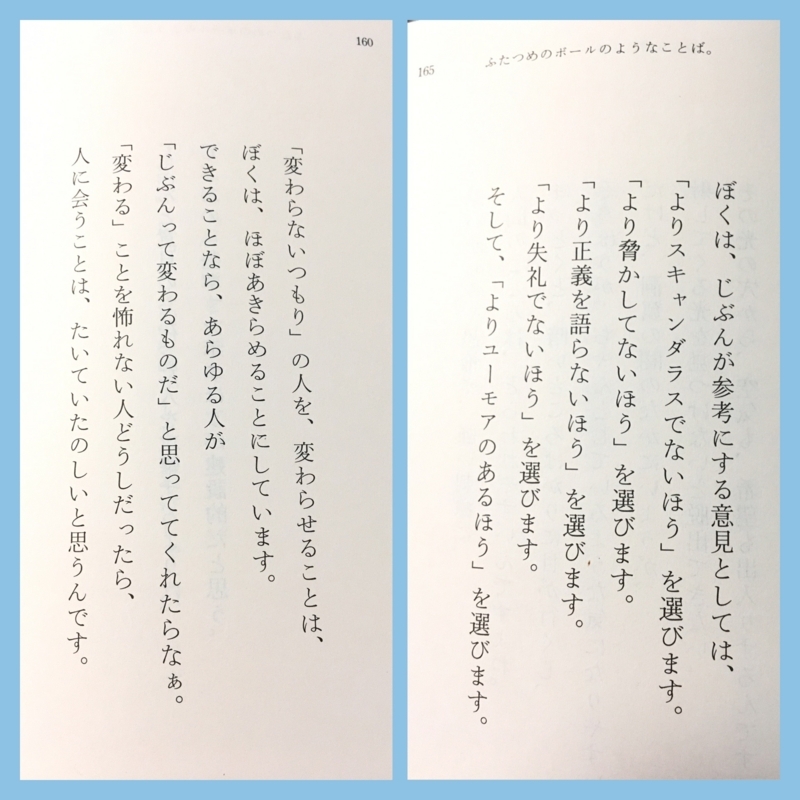 160
「変わらないつもり」の人を、変わらせることは、
ぼくは、ほぼあきらめることにしています。
できることなら、あらゆる人が
「じぶんって変わるものだ」と思っててくれたらなぁ。
「変わる」ことを怖れない人どうしだったら、
人に会うことは、たいていたのしいと思うんです。
165
ふたつめのボールのようなことば。
ぼくは、じぶんが参考にする意見としては、
「よりスキャンダラスでないほう」を選びます。
「より脅かしてないほう」を選びます。
「より正義を語らないほう」を選びます。
「より失礼でないほう」を選びます。
そして、「よりユーモアのあるほう」を選びます。